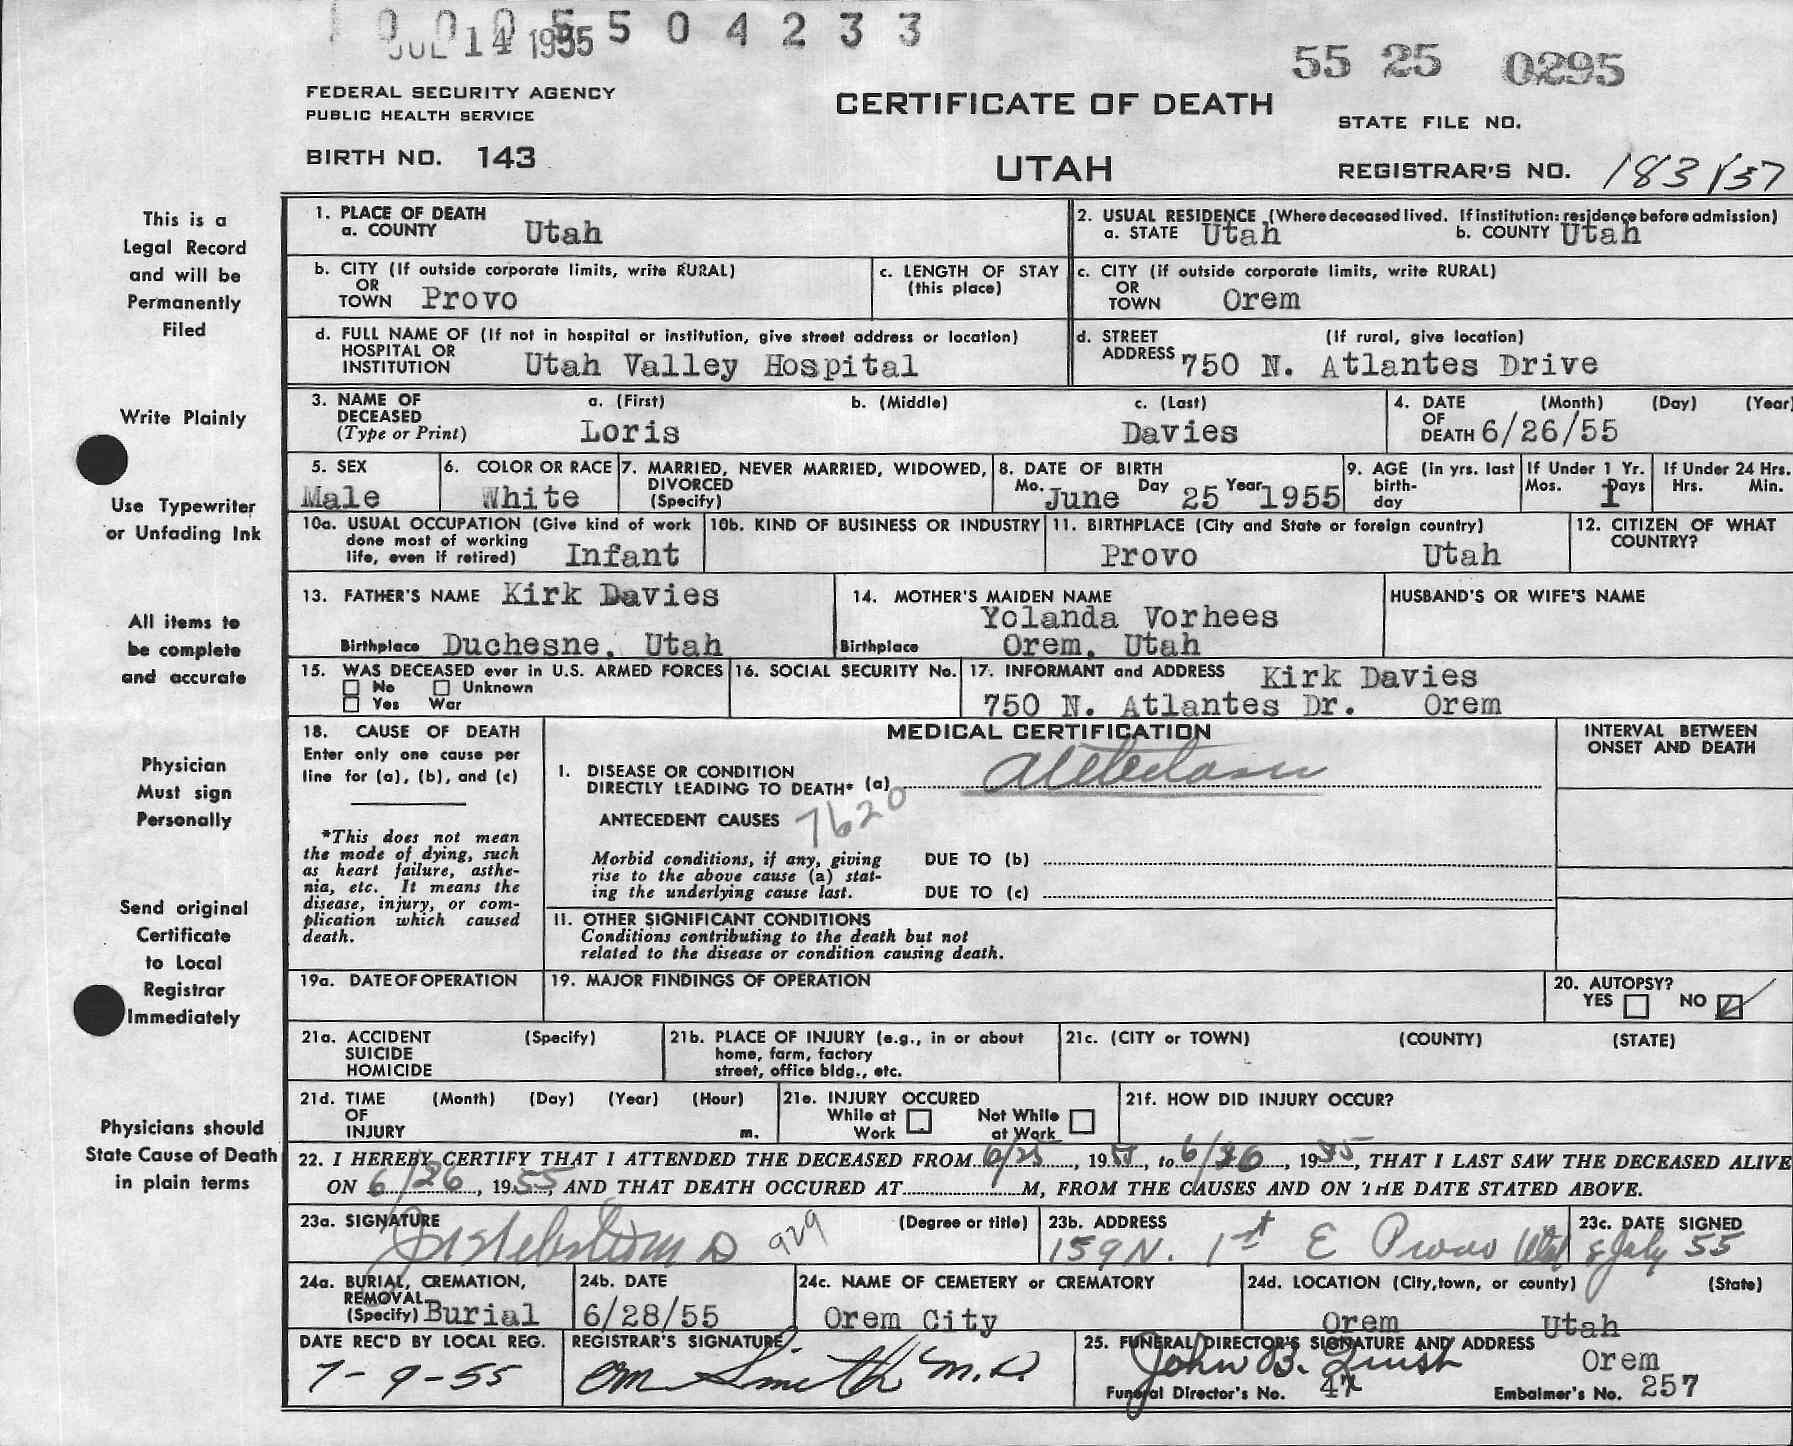 JUL 14 1955 5 5 0 4 2 3 3
55 25 0295
FEDERAL SECURITY AGENCY
PUBLIC HEALTH SERVICE
BIRTH NO. 143
CERTIFICATE OF DEATH
UTAH
STATE FILE NO.
REGISTRAR'S NO. 183
This is a
Legal Record
and will be
Permanently
Filed
Write Plainly
Use Typewriter
or Unfading Ink
All items to
be complete
and accurate
Physician
Must sign
Personally
Send original
Certificate
to Local
Registrar
Immediately
Physicians should
State Cause of Death
in plain terms
1. PLACE OF DEATH
a. COUNTY Utah
2. USUAL RESIDENCE (Where deceased lived. If institution: residence before admission)
a. STATE Utah b. COUNTY Utah
b. CITY (If outside corporate limits, write RURAL)
OR
TOWN Provo
c. LENGTH OF STAY
(this place)
c. CITY (if outside corporate limits, write RURAL)
OR
TOWN Orem
d. FULL NAME OF (If not in hospital or institution, give street address or location)
HOSPITAL OR
INSTITUTION Utah Valley Hospital
d. STREET (If rural, give location)
ADDRESS 750 N. Atlantes Drive
3. NAME OF a. (First) b. (Middle) c. (Last)
DECEASED
(Type or Print) Loris Davies
4. DATE (Month) (Day) (Year)
OF
DEATH 6/26/55
5. SEX
Male
6. COLOR OR RACE
White
7. MARRIED, NEVER MARRIED, WIDOWED,
DIVORCED
(Specify)
8. DATE OF BIRTH
Mo. June Day 25 Year 1955
9. AGE (in yrs. last
birth-
day
If Under 1 Yr.
Mos. 1 Days
If Under 24 Hrs.
Hrs. Min.
10a. USUAL OCCUPATION (Give kind of work
done most of working
life, even if retired) Infant
10b. KIND OF BUSINESS OR INDUSTRY
11. BIRTHPLACE (City and State or foreign country)
Provo Utah
12. CITIZEN OF WHAT
COUNTRY?
13. FATHER'S NAME Kirk Davies
Birthplace Duchesne, Utah
14. MOTHER'S MAIDEN NAME
Yolanda Vorhees
Birthplace Orem, Utah
HUSBAND'S OR WIFE'S NAME
15. WAS DECEASED ever in U.S. ARMED FORCES
No Unknown
Yes War
16. SOCIAL SECURITY No.
17. INFORMANT and ADDRESS Kirk Davies
750 N. Atlantes Dr. Orem
18. CAUSE OF DEATH
Enter only one cause per
line for (a), (b), and (c)
*This does not mean
the mode of dying, such
as heart failure, asthe-
nia, etc. It means the
disease, injury, or com-
plication which caused
death.
MEDICAL CERTIFICATION
I. DISEASE OR CONDITION
DIRECTLY LEADING TO DEATH* (a)
ANTECEDENT CAUSES 7620
Morbid conditions, if any, giving
rise to the above cause (a) stat-
ing the underlying cause last.
DUE TO (b)
DUE TO (c)
II. OTHER SIGNIFICANT CONDITIONS
Conditions contributing to the death but not
related to the disease or condition causing death.
INTERVAL BETWEEN
ONSET AND DEATH
19a. DATE OF OPERATION
19. MAJOR FINDINGS OF OPERATION
20. AUTOPSY?
YES NO
21a. ACCIDENT (Specify)
SUICIDE
HOMICIDE
21b. PLACE OF INJURY (e.g., in or about
home, farm, factory
street, office bldg., etc.
21c. (CITY or TOWN) (COUNTY) (STATE)
21d. TIME (Month) (Day) (Year) (Hour)
OF
INJURY m.
21e. INJURY OCCURED
While at Work Not While at Work
21f. HOW DID INJURY OCCUR?
22. I HEREBY CERTIFY THAT I ATTENDED THE DECEASED FROM 6/25, 1955, to 6/26, 1955, THAT I LAST SAW THE DECEASED ALIVE
ON 6/26, 1955, AND THAT DEATH OCCURED AT M, FROM THE CAUSES AND ON THE DATE STATED ABOVE.
23a. SIGNATURE (Degree or title)
929
23b. ADDRESS
159 N. 1st E Provo Utah
23c. DATE SIGNED
8 July 55
24a. BURIAL, CREMATION,
REMOVAL
(Specify) Burial
24b. DATE
6/28/55
24c. NAME OF CEMETERY or CREMATORY
Orem City
24d. LOCATION (City, town, or county) (State)
Orem Utah
DATE REC'D BY LOCAL REG.
7-9-55
REGISTRAR'S SIGNATURE
OM Smith M.D.
25. FUNERAL DIRECTOR'S SIGNATURE AND ADDRESS
John B. Orem
Funeral Director's No. Embalmer's No. 257